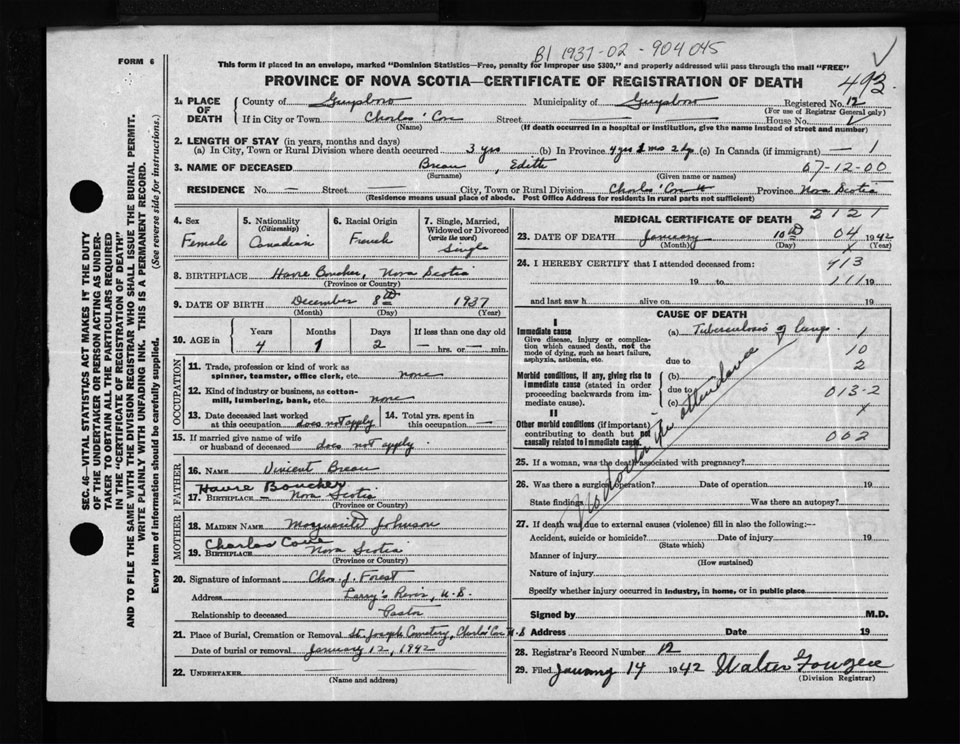 B1 1937-02-904045
FORM 6
This form if placed in an envelope, marked "Dominion Statistics—Free, penalty for improper use $300," and properly addressed will pass through the mail "FREE"
PROVINCE OF NOVA SCOTIA—CERTIFICATE OF REGISTRATION OF DEATH
493
1. PLACE OF DEATH
County of Guysboro Municipality of Guysboro Registered No. 12
(For use of Registrar General only)
If in City or Town Charlos' Cove Street House No.
(Name) (If death occurred in a hospital or institution, give the name instead of street and number)
2. LENGTH OF STAY (in years, months and days)
(a) In City, Town or Rural Division where death occurred 3 yrs (b) In Province 4 yrs 1 mos 2 dys (c) In Canada (if immigrant) — 1
3. NAME OF DECEASED Breau, Edith 67-12-00
(Surname) (Given name or names)
RESIDENCE No. — Street — City, Town or Rural Division Charlos' Cove Province Nova Scotia
(Residence means usual place of abode. Post Office Address for residents in rural parts not sufficient)
4. Sex
Female
5. Nationality
(Citizenship)
Canadian
6. Racial Origin
French
7. Single, Married, Widowed or Divorced
(write the word)
Single
8. BIRTHPLACE Havre Boucher, Nova Scotia
(Province or Country)
9. DATE OF BIRTH December 8th 1937
(Month) (Day) (Year)
10. AGE in
Years Months Days If less than one day old
4 1 2 — hrs. or — min.
OCCUPATION
11. Trade, profession or kind of work as spinner, teamster, office clerk, etc. none
12. Kind of industry or business, as cotton-mill, lumbering, bank, etc. none
13. Date deceased last worked at this occupation does not apply
14. Total yrs. spent in this occupation —
15. If married give name of wife or husband of deceased does not apply
FATHER
16. NAME Vincent Breau
Havre Boucher
17. BIRTHPLACE — Nova Scotia
(Province or Country)
MOTHER
18. MAIDEN NAME Marguerite Johnson
Charlos Cove
19. BIRTHPLACE Nova Scotia
(Province or Country)
20. Signature of informant Chas. J. Forest
Address Larry's River, N.S.
Relationship to deceased Pastor
21. Place of Burial, Cremation or Removal St. Joseph Cemetery, Charlos' Cove N.S
Date of burial or removal January 12, 1942
22. UNDERTAKER
(Name and address)
MEDICAL CERTIFICATE OF DEATH
2121
23. DATE OF DEATH January 10th 04 1942
(Month) (Day) (Year)
24. I HEREBY CERTIFY that I attended deceased from:
913
19 to 111 19
and last saw h alive on 19
CAUSE OF DEATH
I
Immediate cause
Give disease, injury or complication which caused death, not the mode of dying, such as heart failure, asphyxia, asthenia, etc.
(a) Tuberculosis of lungs 1
10
due to 2
Morbid conditions, if any, giving rise to immediate cause (stated in order proceeding backwards from immediate cause).
(b)
due to
(c) 013-2
x
II
Other morbid conditions (if important) contributing to death but not causally related to immediate cause.
002
No doctor in attendance
25. If a woman, was the death associated with pregnancy?
26. Was there a surgical operation? Date of operation 19
State findings Was there an autopsy?
27. If death was due to external causes (violence) fill in also the following:—
Accident, suicide or homicide? Date of injury 19
(State which)
Manner of injury
(How sustained)
Nature of injury
Specify whether injury occurred in industry, in home, or in public place
Signed by M.D.
Address Date 19
28. Registrar's Record Number 12
29. Filed January 14 1942 Walter Fougere
(Division Registrar)
SEC. 46—VITAL STATISTICS ACT MAKES IT THE DUTY
OF THE UNDERTAKER OR PERSON ACTING AS UNDER-
TAKER TO OBTAIN ALL THE PARTICULARS REQUIRED
IN THE "CERTIFICATE OF REGISTRATION OF DEATH"
AND TO FILE THE SAME WITH THE DIVISION REGISTRAR WHO SHALL ISSUE THE BURIAL PERMIT.
WRITE PLAINLY WITH UNFADING INK. THIS IS A PERMANENT RECORD.
Every item of information should be carefully supplied. (See reverse side for instructions.)